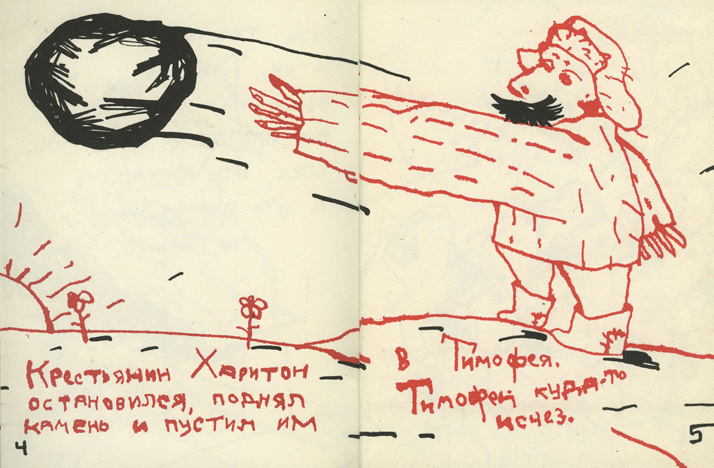 Крестьянин Харитон
остановился, поднял
камень и пустил им
4
в Тимофея.
Тимофей куда-то
исчез.
5